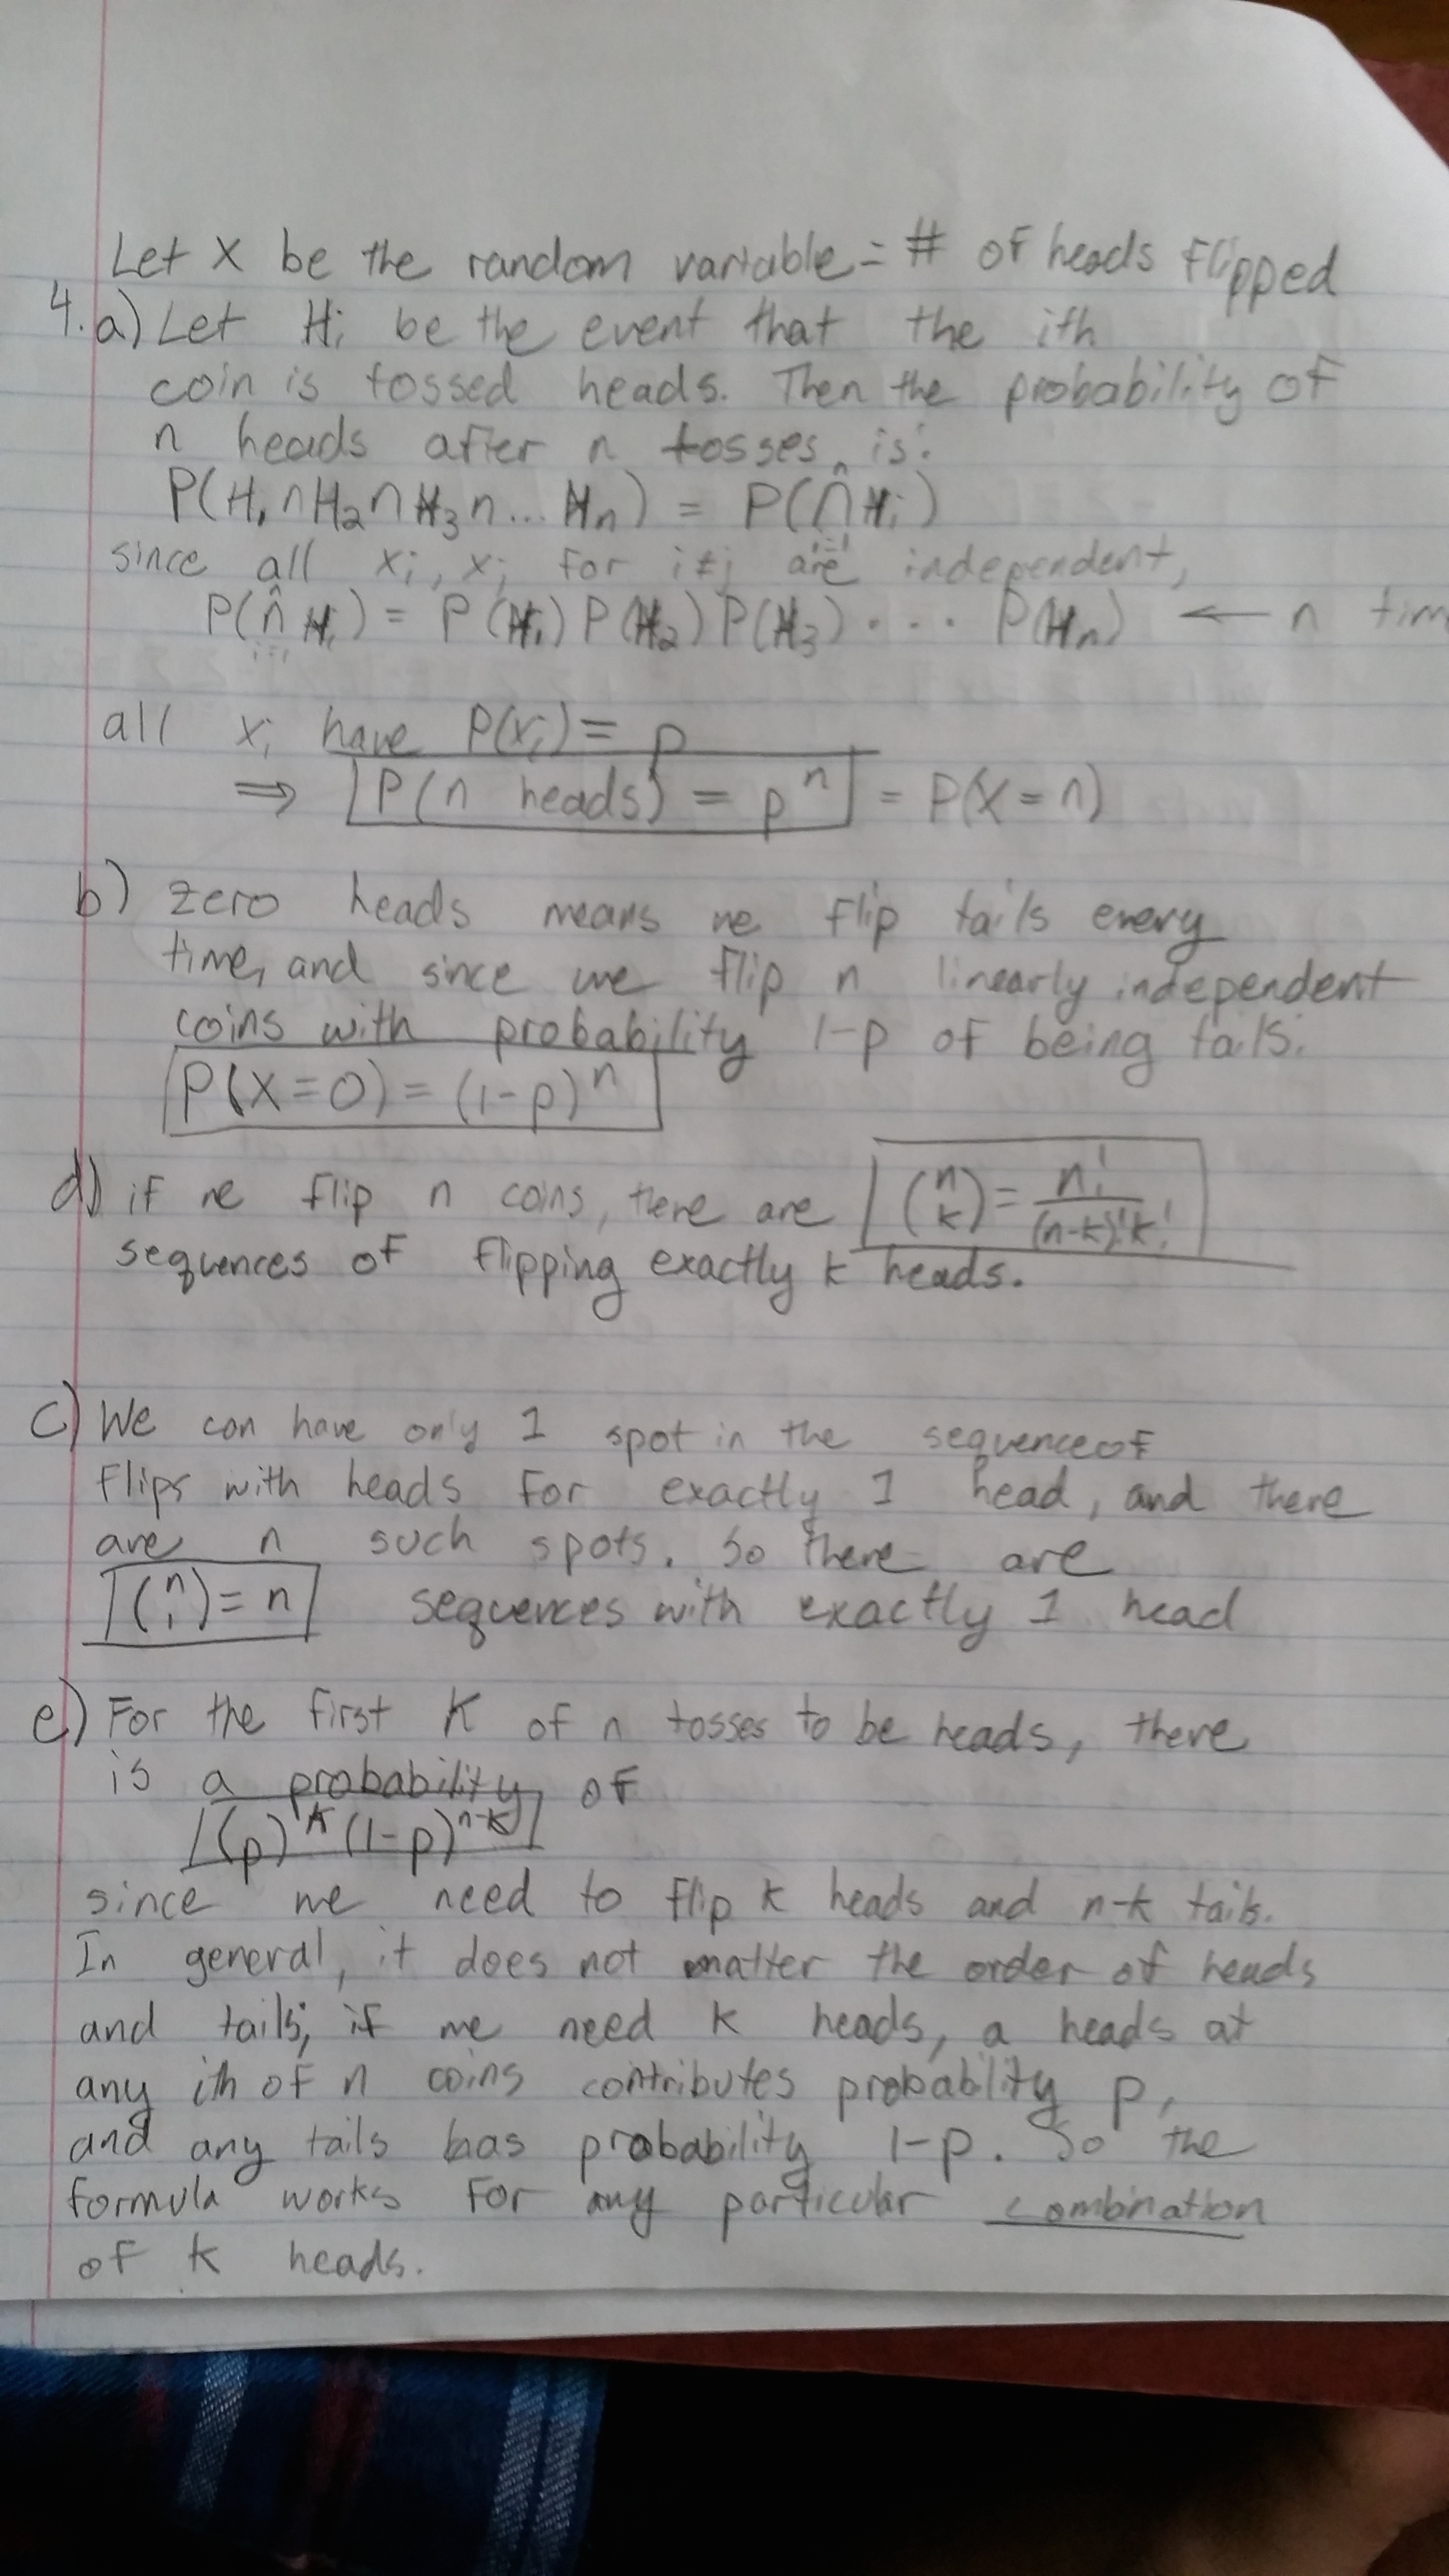 Let X be the random variable = # of heads flipped
4. a) Let Hi be the event that the ith
coin is tossed heads. Then the probability of
n heads after n tosses is:
P(H1 ∩ H2 ∩ H3 ∩ ... Hn) = P(∩ⁿᵢ₌₁ Hi)
since all xi, xj for i≠j are independent,
P(∩ⁿᵢ₌₁ Hi) = P(H1) P(H2) P(H3) · · · P(Hn) ← n tim
all xi have P(xi) = p
⇒ P(n heads) = pⁿ = P(X = n)
b) zero heads means we flip tails every
time, and since we flip n linearly independent
coins with probability 1-p of being tails.
P(X=0) = (1-p)ⁿ
d) if we flip n coins, there are (n k) = n!/((n-k)!k!)
sequences of flipping exactly k heads.
c) We can have only 1 spot in the sequence of
flips with heads for exactly 1 head, and there
are n such spots. So there are
(n 1) = n sequences with exactly 1 head
e) For the first K of n tosses to be heads, there
is a probability of
(p)^k (1-p)^(n-k)
since we need to flip k heads and n-k tails.
In general, it does not matter the order of heads
and tails; if we need k heads, a heads at
any ith of n coins contributes probablity p,
and any tails has probability 1-p. So the
formula works for any particular combination
of k heads.